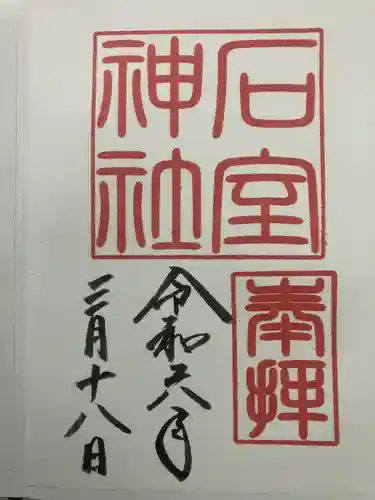 石室
神社
奉拝
令和六年
三月十八日